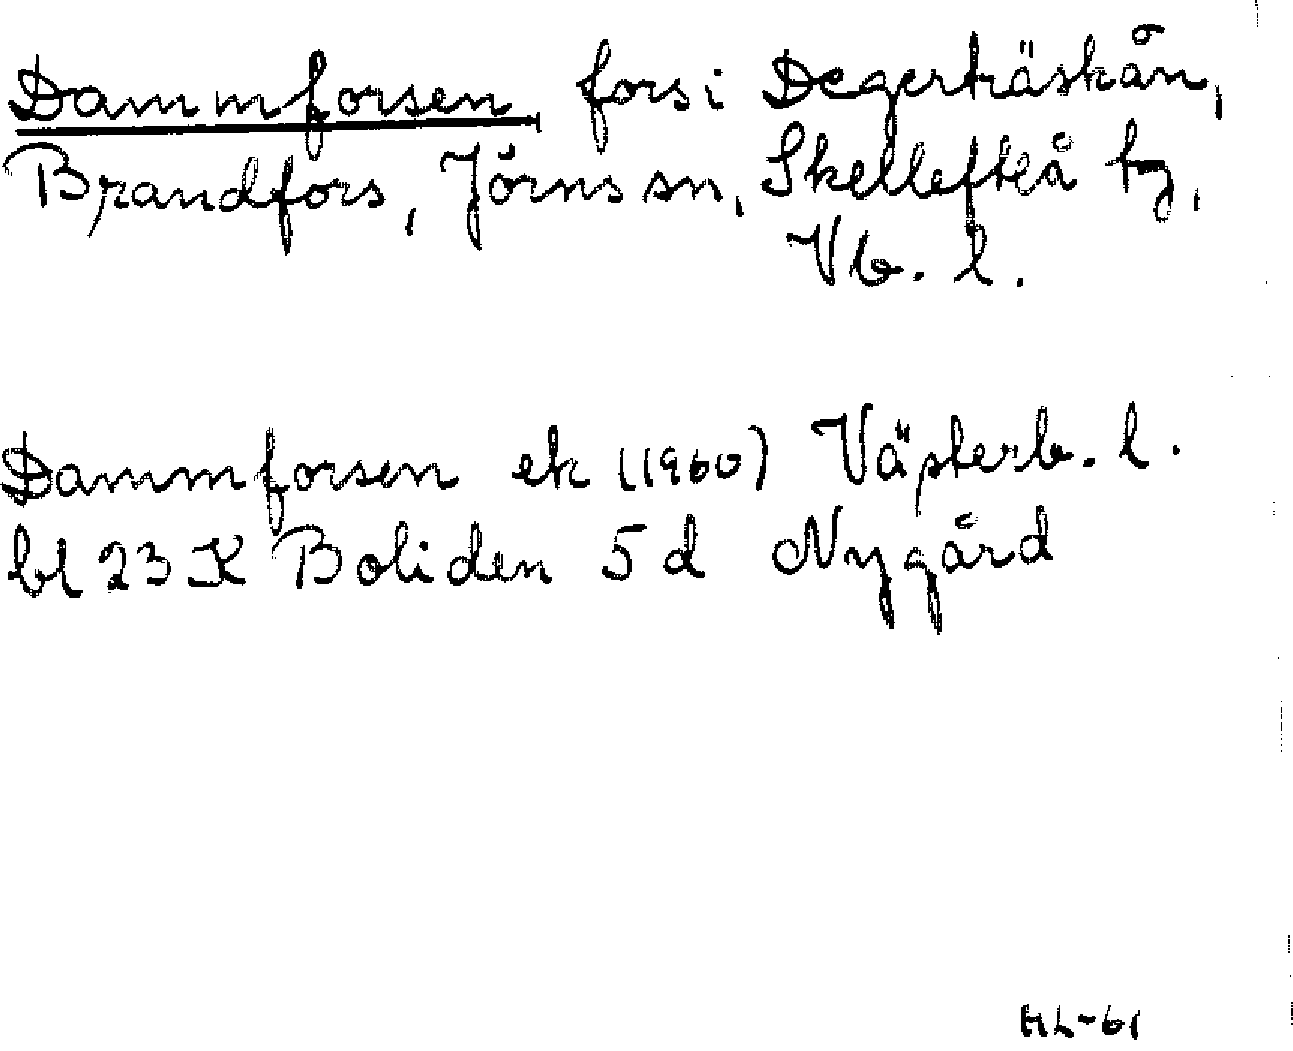 Dammforsen, fors i Degerträskån,
Brandfors, Jörns sn, Skellefteå tg,
Vb. l.
Dammforsen ek (1960) Västerb. l.
bl 23 K Boliden 5 d Nygård
HL-61